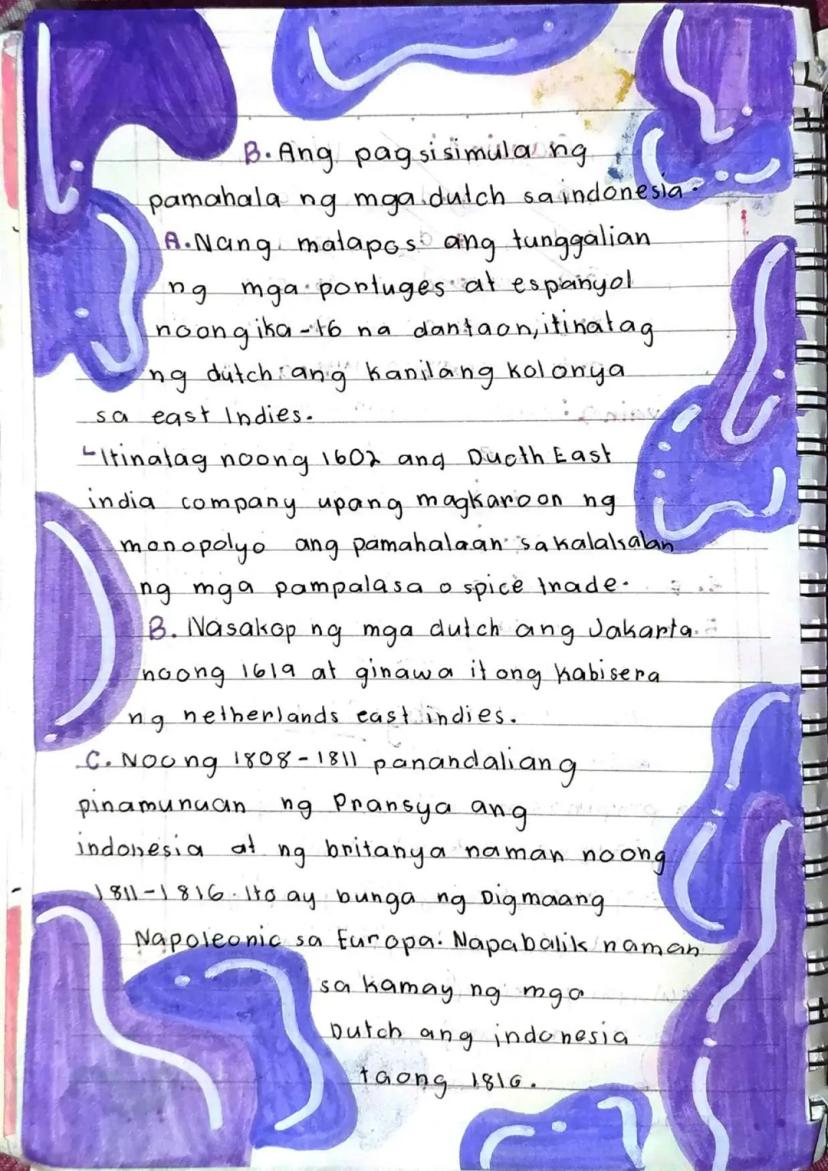 B. Ang pagsisimula ng
pamahala ng mga dutch sa indonesia.
A. Nang matapos ang tunggalian
ng mga portuges at espanyol
noong ika-16 na dantaon, itinatag
ng dutch ang kanilang kolonya
sa east Indies.
Itinatag noong 1602 ang Ducth East
india company upang magkaroon ng
monopolyo ang pamahalaan sa kalakalan
ng mga pampalasa o spice trade.
B. Nasakop ng mga dutch ang Jakarta
noong 1619 at ginawa itong kabisera
ng netherlands east indies.
C. Noong 1808-1811 panandaliang
pinamunuan ng Pransya ang
indonesia at ng britanya naman noong
1811-1816. Ito ay bunga ng Digmaang
Napoleonic sa Europa. Napabalik naman
sa kamay ng mga
Dutch ang indonesia
taong 1816.